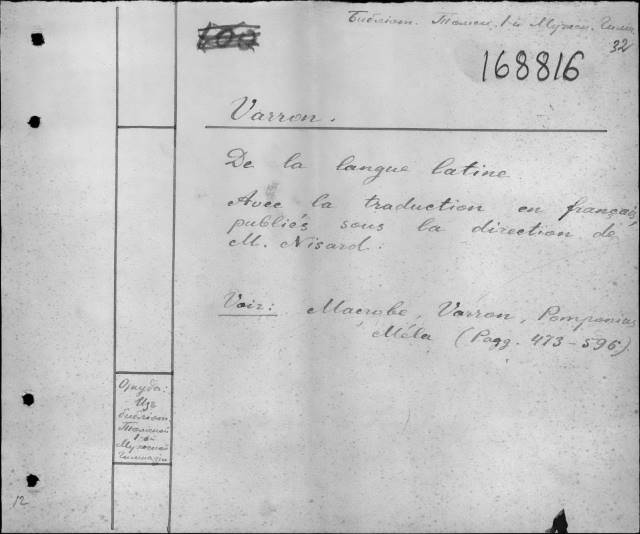 Библіот. Томск. 1-й Мужск. Гимн.
32
168816
Varron.
De la langue latine
Avec la traduction en français,
publiés sous la direction de
M. Nisard.
Voir: Macrobe, Varron, Pomponius
Méla (Pagg. 473-596)
Откуда:
Из
библіот.
Томской
1-ой
Мужской
Гимназіи
12